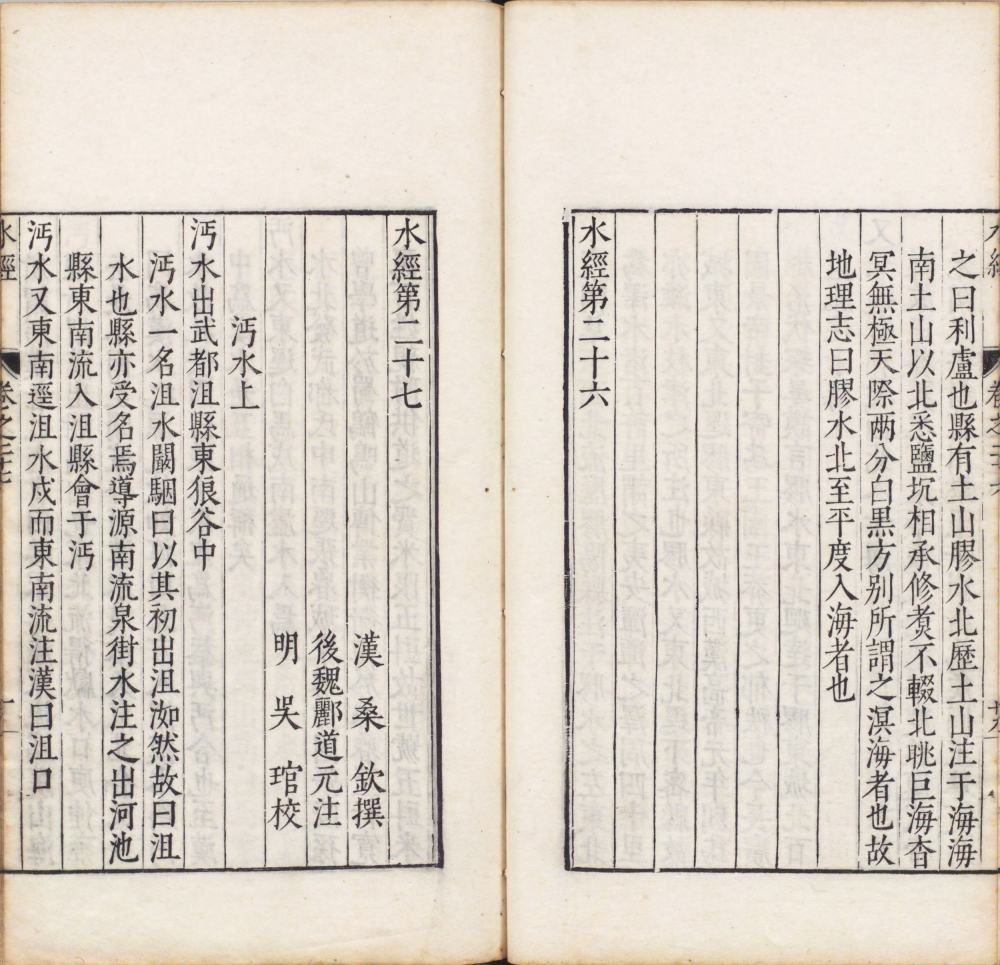 之曰利盧也縣有土山膠水北歷土山注于海海
南土山以北悉鹽坑相承修煑不輟北眺巨海杳
冥無極天際兩分白黑方别所謂之溟海者也故
地理志曰膠水北至平度入海者也
水經第二十六
水經第二十七
漢桑欽撰
後魏酈道元注
明吳琯校
沔水上
沔水出武都沮縣東狼谷中
沔水一名沮水闞駰曰以其初出沮洳然故曰沮
水也縣亦受名焉導源南流泉街水注之出河池
縣東南流入沮縣會于沔
沔水又東南逕沮水戍而東南流注漢曰沮口
水經 卷之二十七